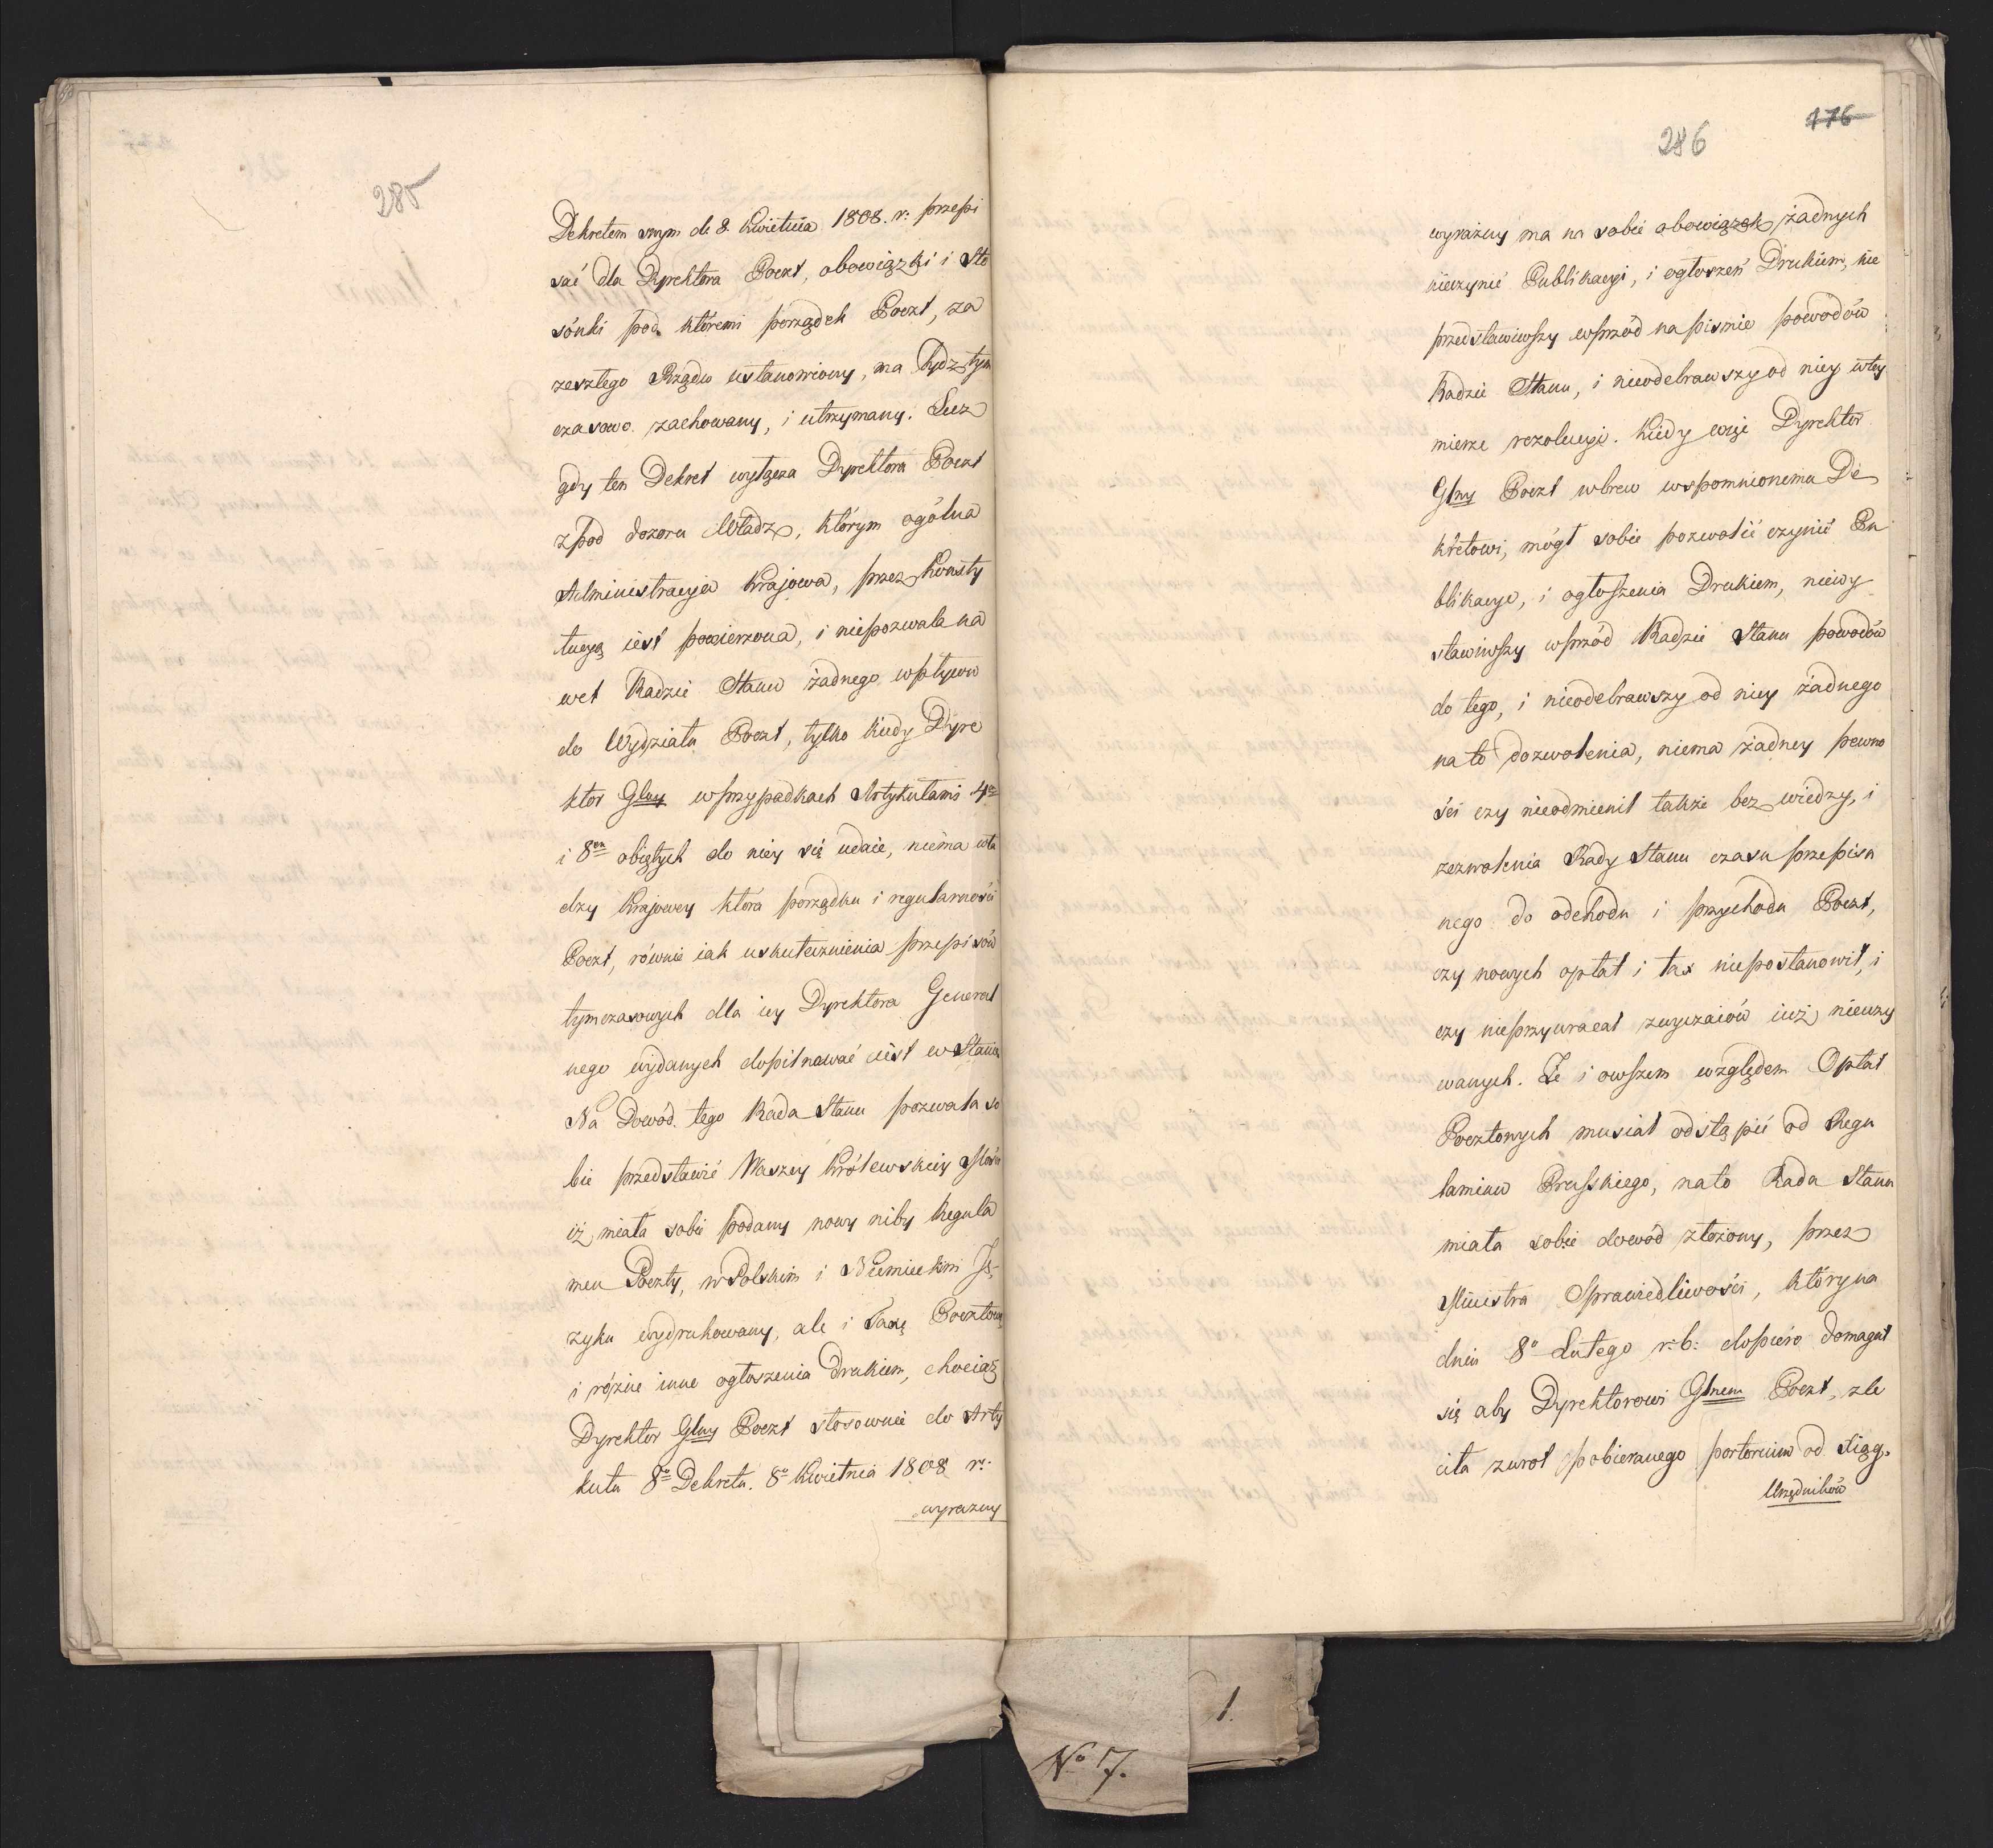 285
Dekretem swym d. 8. Kwietnia 1808. r: przepi
sać dla Dyrektora Poczt, obowiązki i sto
sónki pod któremi porządek Poczt, za
zeszłego Rządu ustanowiony, ma bydz tym
czasowo zachowany, i utrzymany. Lecz
gdy ten Dekret wyłącza Dyrektora Poczt
z pod dozoru Władz, którym ogólna
Administracya Krajowa, przez Konsty
tucyą iest powierzona, i niepozwala na
wet Radzie Stanu żadnego wpływu
do Wydziału Poczt, tylko kiedy Dyre
ktor Glny w przypadkach Artykułami 4m
i 8m obiętych do niey się udaie, niema wła
dzy Krajowey która porządku i regularności
Poczt, równie iak uskutecznienia przepisów
tymczasowych dla iey Dyrektora General
nego wydanych dopilnować iest w Stanie
Na Dowód tego Rada Stanu pozwala so
bie przedstawić Waszey Królewskiey Mości
iż miała sobie podany nowy niby Regula
men Poczty, w Polskim i Niemieckim Ję-
zyku wydrukowany, ale i Taxę Pocztową
i różne inne ogłoszenia Drukiem, chociaż
Dyrektor Glny Poczt stosownie do Arty
kułu 8o Dekretu. 8o Kwietnia 1808 r:
wyrazny
176
286
wyrażny ma na sobie obowiązek, żadnych
nieczynić Publikacyi, i ogłoszeń Drukiem, nie
przedstawiwszy wprzód na pismie powodów
Radzie Stanu, i nieodebrawszy od niey w tey
mierze rezolucyi. Kiedy więc Dyrektor
Glny Poczt wbrew wspomnionemu De
kretowi, mógł sobie pozwolić czynić Pu
blikacye, i ogłoszenia Drukiem, niewy
stawiwszy wprzód Radzie Stanu powodów
do tego, i nieodebrawszy od niey żadnego
na to dozwolenia, niema żadney pewno
ści czy nieodmienił także bez wiedzy, i
zezwolenia Rady Stanu czasu przepisa
nego do odchodu i przychodu Poczt,
czy nowych opłat i tax niepostanowił, i
czy nieprzywracał zwyczaiów iuż nieuży
wanych. Że i owszem względem Opłat
Pocztowych musiał odstąpić od Regu
laminu Prusskiego, na to Rada Stanu
miała sobie dowód złożony, przez
Ministra Sprawiedliwości, który na
dniu 8o Lutego r. b: dopiero domagał
się aby Dyrektorowi Glnem Poczt, zle
ciła zwrot pobieranego portorium od Xiąg.
Urzędników
1.
No 7.